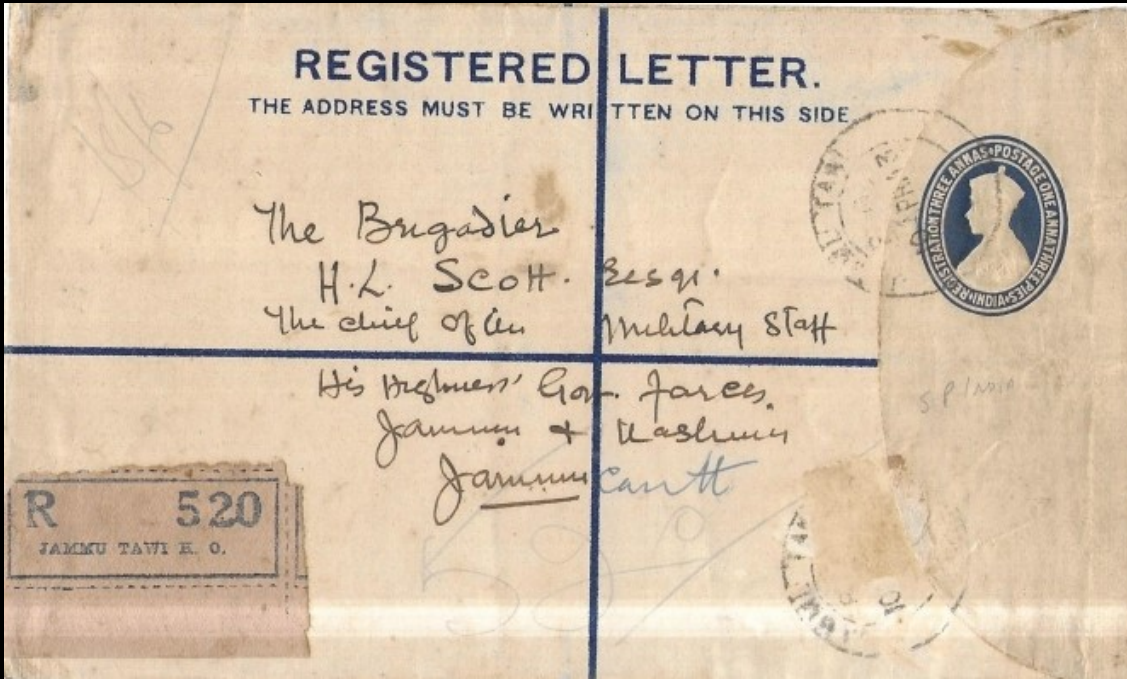 REGISTERED LETTER.
THE ADDRESS MUST BE WRITTEN ON THIS SIDE
REGISTRATION THREE ANNAS • POSTAGE ONE ANNA THREE PIES • INDIA
The Brigadier
H.L. Scott. Eesqr.
The chief of the Military Staff
His Highness' Gov. Forces,
Jammu + Kashmir
Jammu Cantt
S P INDIA
R 520
JAMMU TAWI H. O.
520